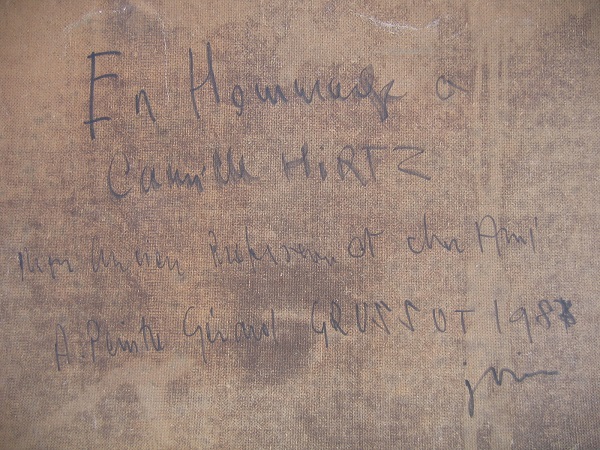 En Hommage a
Camille HIRTZ
Mon Ancien Professeur et cher Ami
A. Peintre Gérard GRUSSOT 1987
juin